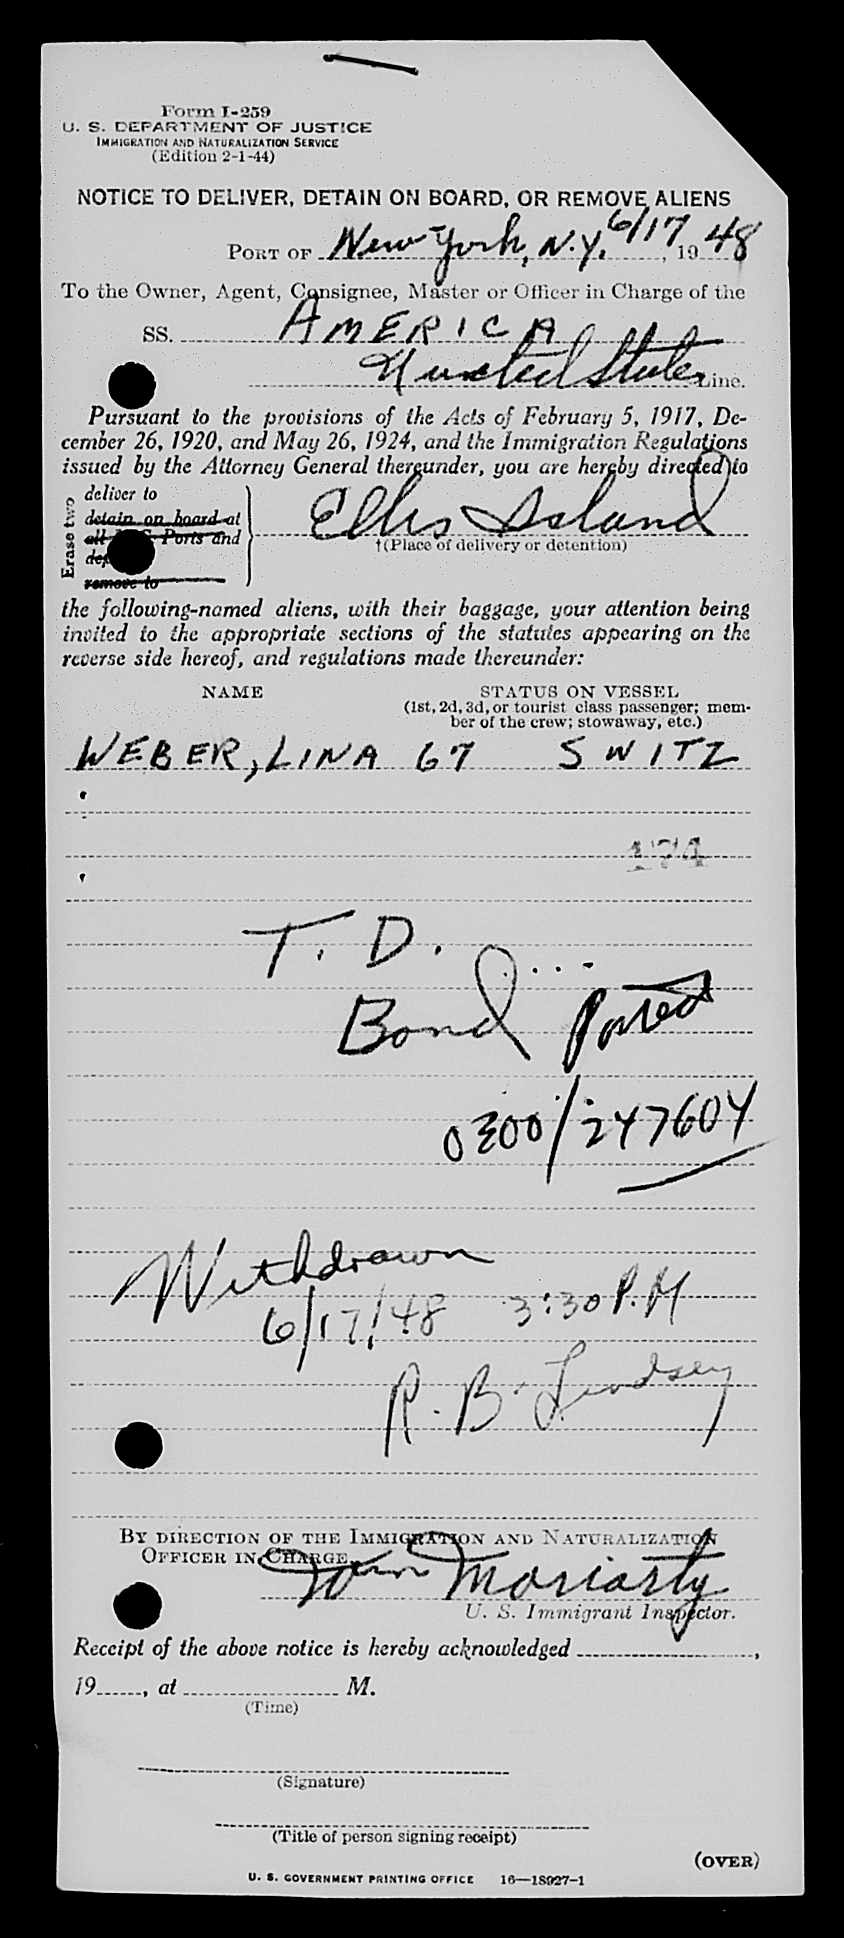 Form I-259
U. S. DEPARTMENT OF JUSTICE
IMMIGRATION AND NATURALIZATION SERVICE
(Edition 2-1-44)
NOTICE TO DELIVER, DETAIN ON BOARD, OR REMOVE ALIENS
PORT OF New York, N.Y. 6/17, 1948
To the Owner, Agent, Consignee, Master or Officer in Charge of the
SS. AMERICA
United States Line.
Pursuant to the provisions of the Acts of February 5, 1917, De-
cember 26, 1920, and May 26, 1924, and the Immigration Regulations
issued by the Attorney General thereunder, you are hereby directed to
Erase two
deliver to
detain on board at
all Ports and
remove to
Ellis Island
†(Place of delivery or detention)
the following-named aliens, with their baggage, your attention being
invited to the appropriate sections of the statutes appearing on the
reverse side hereof, and regulations made thereunder:
NAME STATUS ON VESSEL
(1st, 2d, 3d, or tourist class passenger; mem-
ber of the crew; stowaway, etc.)
WEBER, LINA 67 SWITZ
174
T. D.
Bond Posted
0300/247604
Withdrawn
6/17/48 3:30 P.M
R. B. Lindsey
BY DIRECTION OF THE IMMIGRATION AND NATURALIZATION
OFFICER IN CHARGE.
John Moriarty
U. S. Immigrant Inspector.
Receipt of the above notice is hereby acknowledged ,
19 , at M.
(Time)
(Signature)
(Title of person signing receipt)
(OVER)
U. S. GOVERNMENT PRINTING OFFICE 16—18927-1